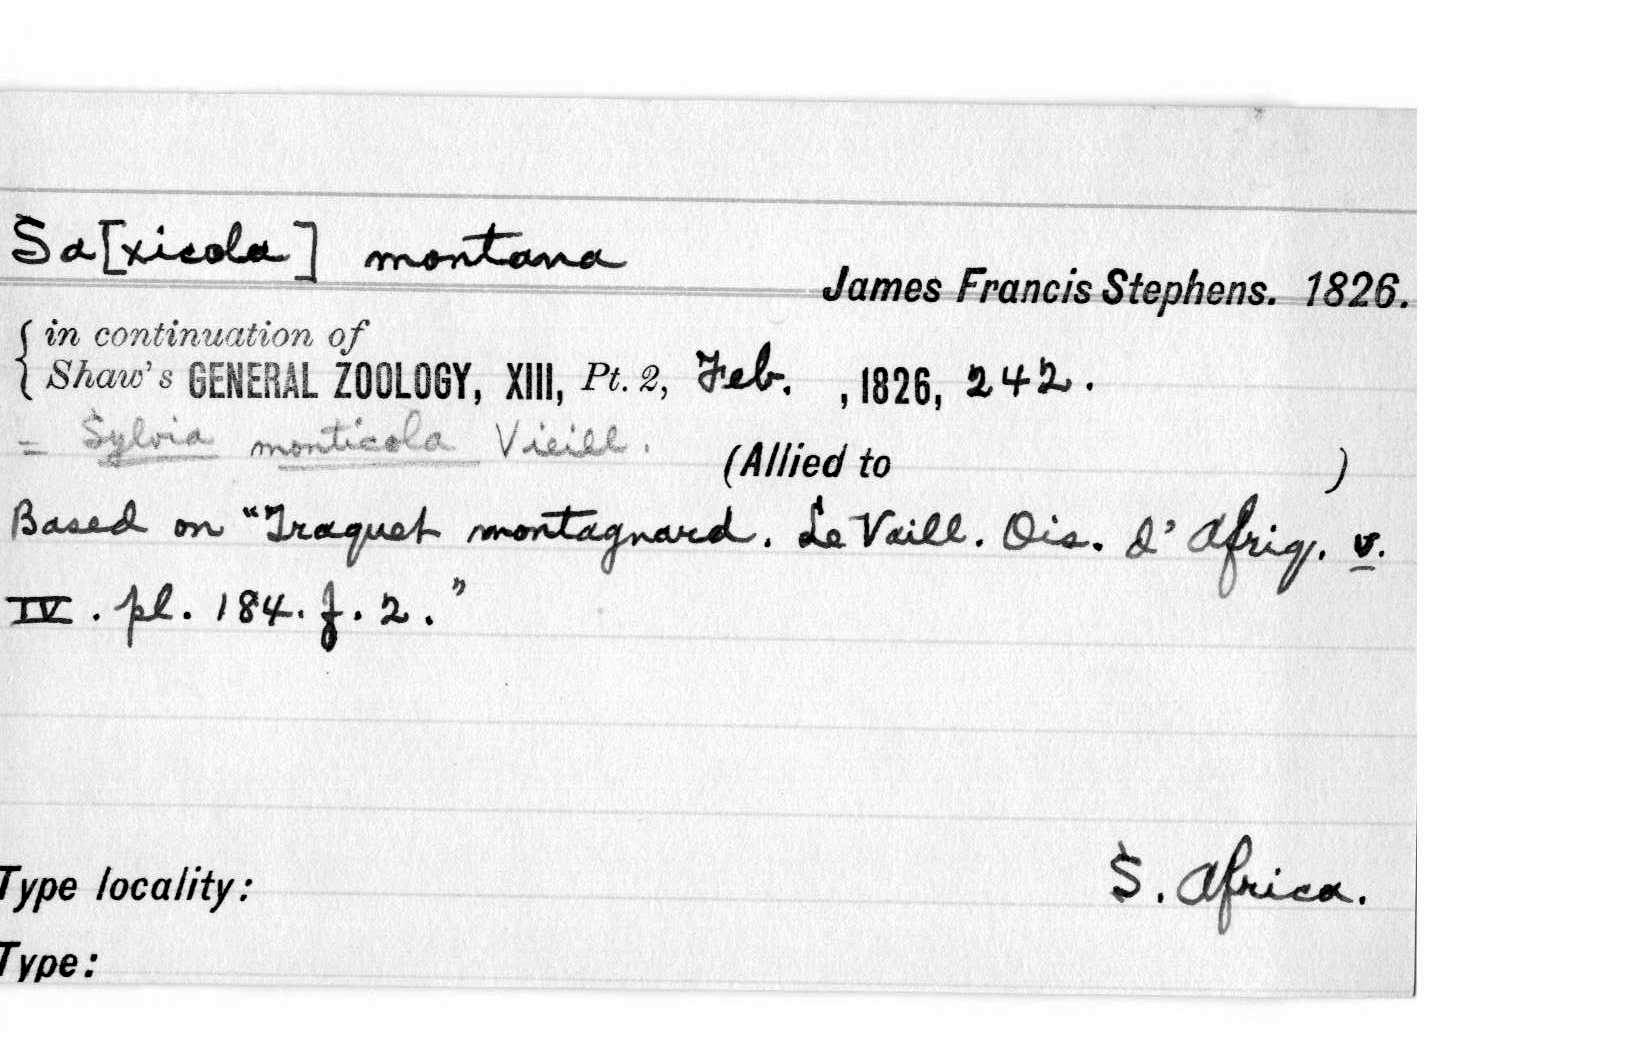 Sa[xicola] montana
James Francis Stephens. 1826.
{ in continuation of
Shaw's GENERAL ZOOLOGY, XIII, Pt. 2, Feb. , 1826, 242.
= Sylvia monticola Vieill.
(Allied to )
Based on "Traquet montagnard. Le Vaill. Ois. d'Afriq. v.
IV. pl. 184. f. 2."
Type locality: S. Africa.
Type: